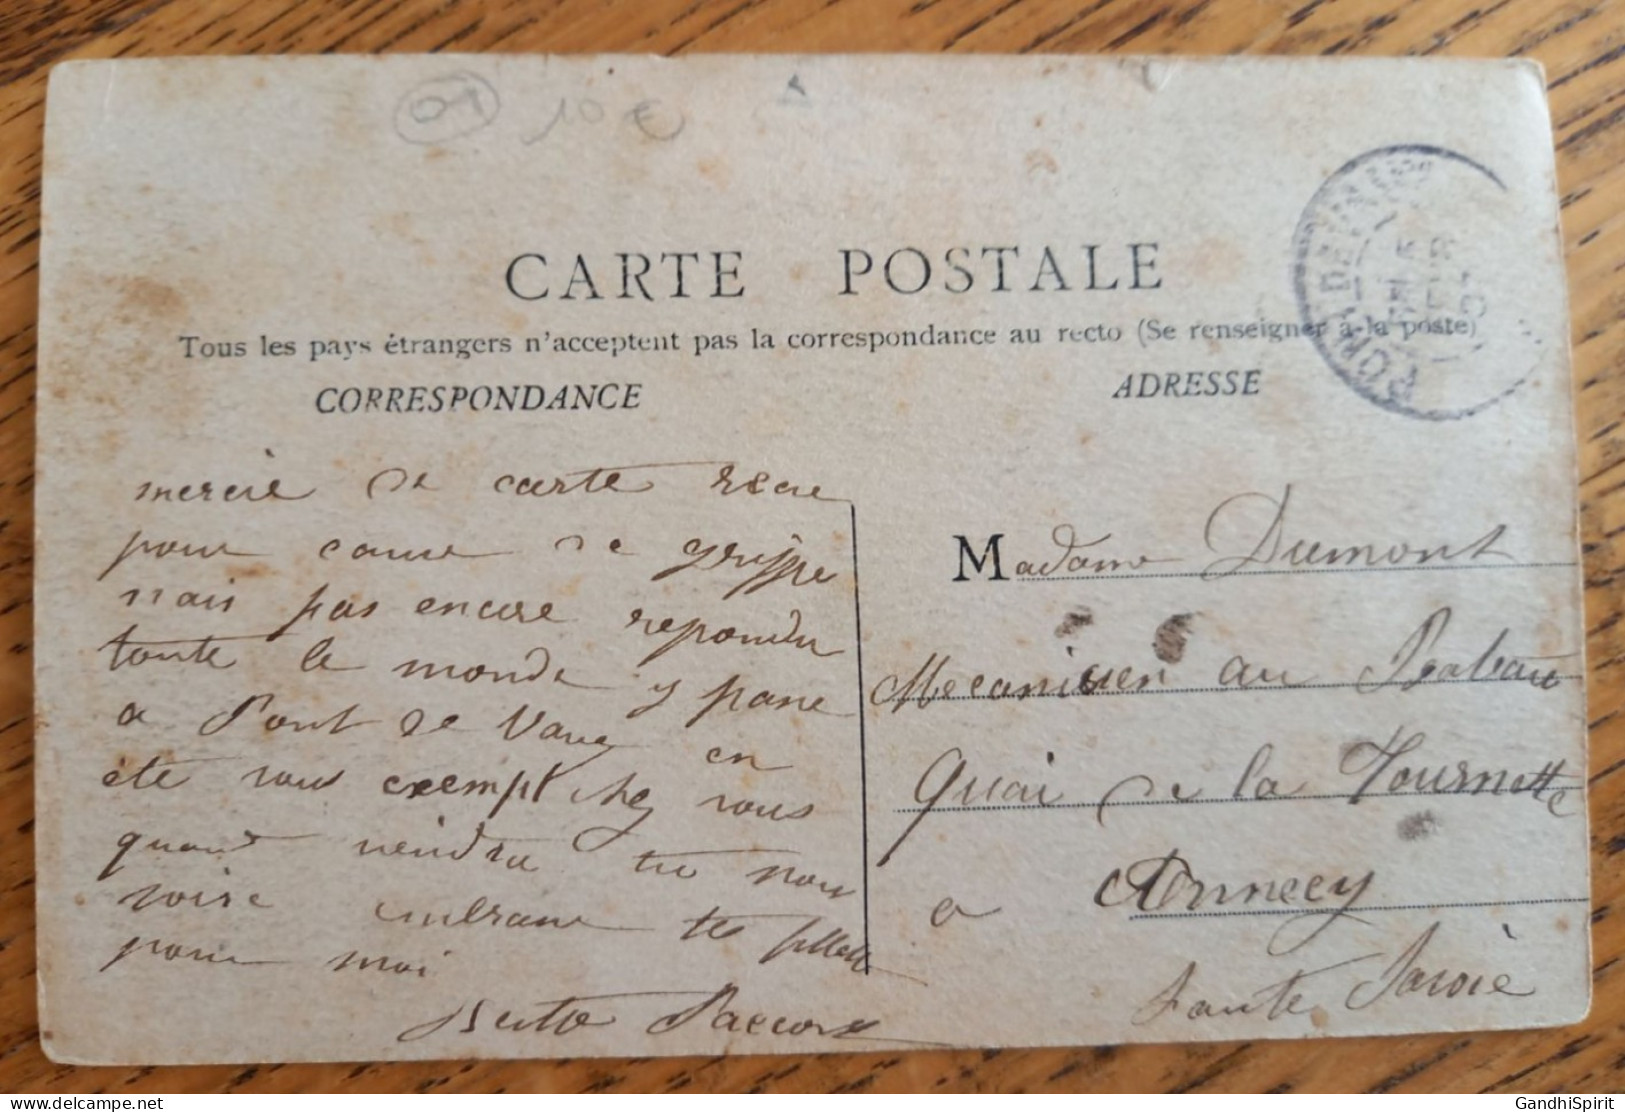 01 10 €
CARTE POSTALE
Tous les pays étrangers n'acceptent pas la correspondance au recto (Se renseigner à la poste)
CORRESPONDANCE
ADRESSE
PONT DE
mercie de carte recue
pour cause de grippe
nais pas encore repondu
toute le monde y passe
a Pont de Vaux en
éte vous exempt chez vous
quand viendra tu nous
voire embrasse tes filles
pour moi
Berthe Paccoux
Madame Dumont
Mecanicien au Bateau
Quai de la Tournette
a Annecy
Haute Savoie
GandhiSpirit